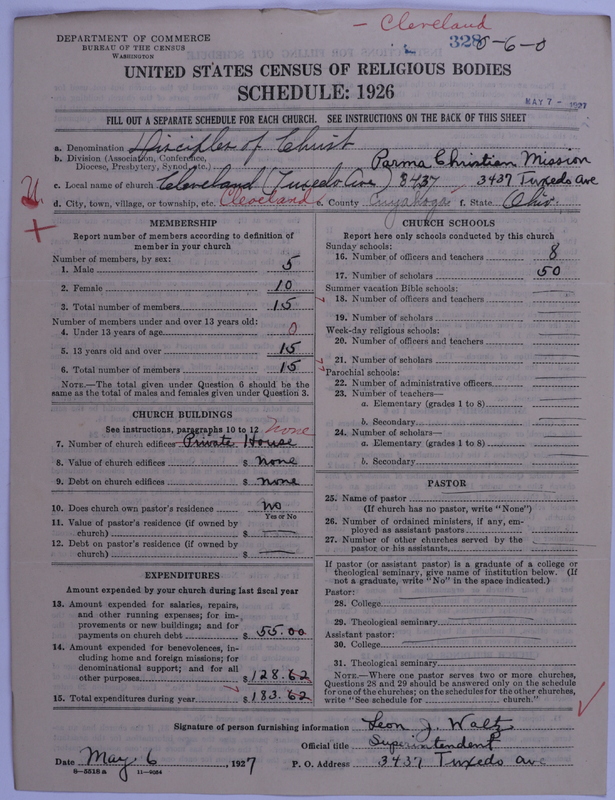 — Cleveland
DEPARTMENT OF COMMERCE
BUREAU OF THE CENSUS
WASHINGTON
328 0-6-0
UNITED STATES CENSUS OF RELIGIOUS BODIES
SCHEDULE: 1926
MAY 7 - 1927
FILL OUT A SEPARATE SCHEDULE FOR EACH CHURCH. SEE INSTRUCTIONS ON THE BACK OF THIS SHEET
a. Denomination Disciples of Christ
b. Division (Association, Conference, Diocese, Presbytery, Synod, etc.) Parma Christian Mission
c. Local name of church Cleveland (Tuxedo Ave) 3437 3437 Tuxedo Ave
d. City, town, village, or township, etc. Cleveland e. County Cuyahoga f. State Ohio
MEMBERSHIP
Report number of members according to definition of
member in your church
Number of members, by sex:
1. Male 5
2. Female 10
3. Total number of members 15
Number of members under and over 13 years old:
4. Under 13 years of age 0
5. 13 years old and over 15
6. Total number of members 15
NOTE.—The total given under Question 6 should be the
same as the total of males and females given under Question 3.
CHURCH BUILDINGS
See instructions, paragraphs 10 to 12 none
7. Number of church edifices Private House
8. Value of church edifices $ none
9. Debt on church edifices $ none
10. Does church own pastor's residence No
Yes or No
11. Value of pastor's residence (if owned by
church) $
12. Debt on pastor's residence (if owned by
church) $
EXPENDITURES
Amount expended by your church during last fiscal year
13. Amount expended for salaries, repairs,
and other running expenses; for im-
provements or new buildings; and for
payments on church debt $ 55.00
14. Amount expended for benevolences, in-
cluding home and foreign missions; for
denominational support; and for all
other purposes $ 128.62
15. Total expenditures during year $ 183.62
CHURCH SCHOOLS
Report here only schools conducted by this church
Sunday schools:
16. Number of officers and teachers 8
17. Number of scholars 50
Summer vacation Bible schools:
18. Number of officers and teachers
19. Number of scholars
Week-day religious schools:
20. Number of officers and teachers
21. Number of scholars
Parochial schools:
22. Number of administrative officers
23. Number of teachers—
a. Elementary (grades 1 to 8)
b. Secondary
24. Number of scholars—
a. Elementary (grades 1 to 8)
b. Secondary
PASTOR
25. Name of pastor
(If church has no pastor, write "None")
26. Number of ordained ministers, if any, em-
ployed as assistant pastors
27. Number of other churches served by the
pastor or his assistants
If pastor (or assistant pastor) is a graduate of a college or
theological seminary, give name of institution below. (If
not a graduate, write "No" in the space indicated.)
Pastor:
28. College
29. Theological seminary
Assistant pastor:
30. College
31. Theological seminary
NOTE.—Where one pastor serves two or more churches,
Questions 28 and 29 should be answered only on the schedule
for one of the churches; on the schedules for the other churches,
write "See schedule for church."
Signature of person furnishing information Leon J. Waltz
Official title Superintendent
Date May 6, 1927 P. O. Address 3437 Tuxedo Ave
8—5518 a 11—9034